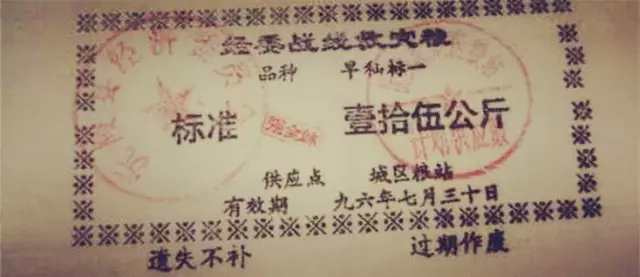 经委战线救灾粮
品种 早籼标一
标准 壹拾伍公斤
供应点 城区粮站
有效期 九六年七月三十日
遗失不补 过期作废